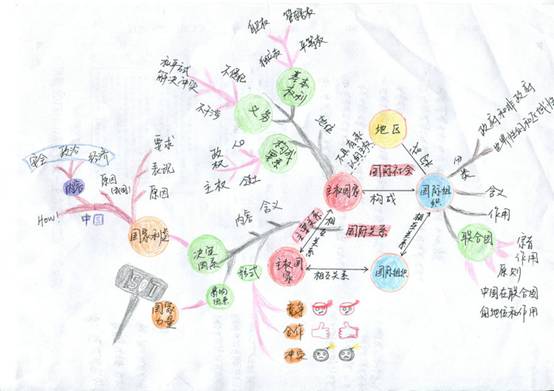 自卫权
独立权
平等权
管辖权
和平方式
解决冲突
不侵犯
不干涉
义务
基本
权利
地位
构成
要素
政权
人口
主权
领土
不具有承
认的主权
地区
国际社会
主权国家
构成
国际组
织
分类
政府和非政府
世界性的和区域性
含义
作用
联合国
宗旨
作用
原则
中国在联合国
的地位和作用
安全
政治
经济
内容
原因
要求
表现
原因
How!
中国
国家利益
决定
因素
内容
含义
国际关系
主权国
家
相互关系
国际组织
形式
影响因素
国家
力量
竞争
合作
冲突